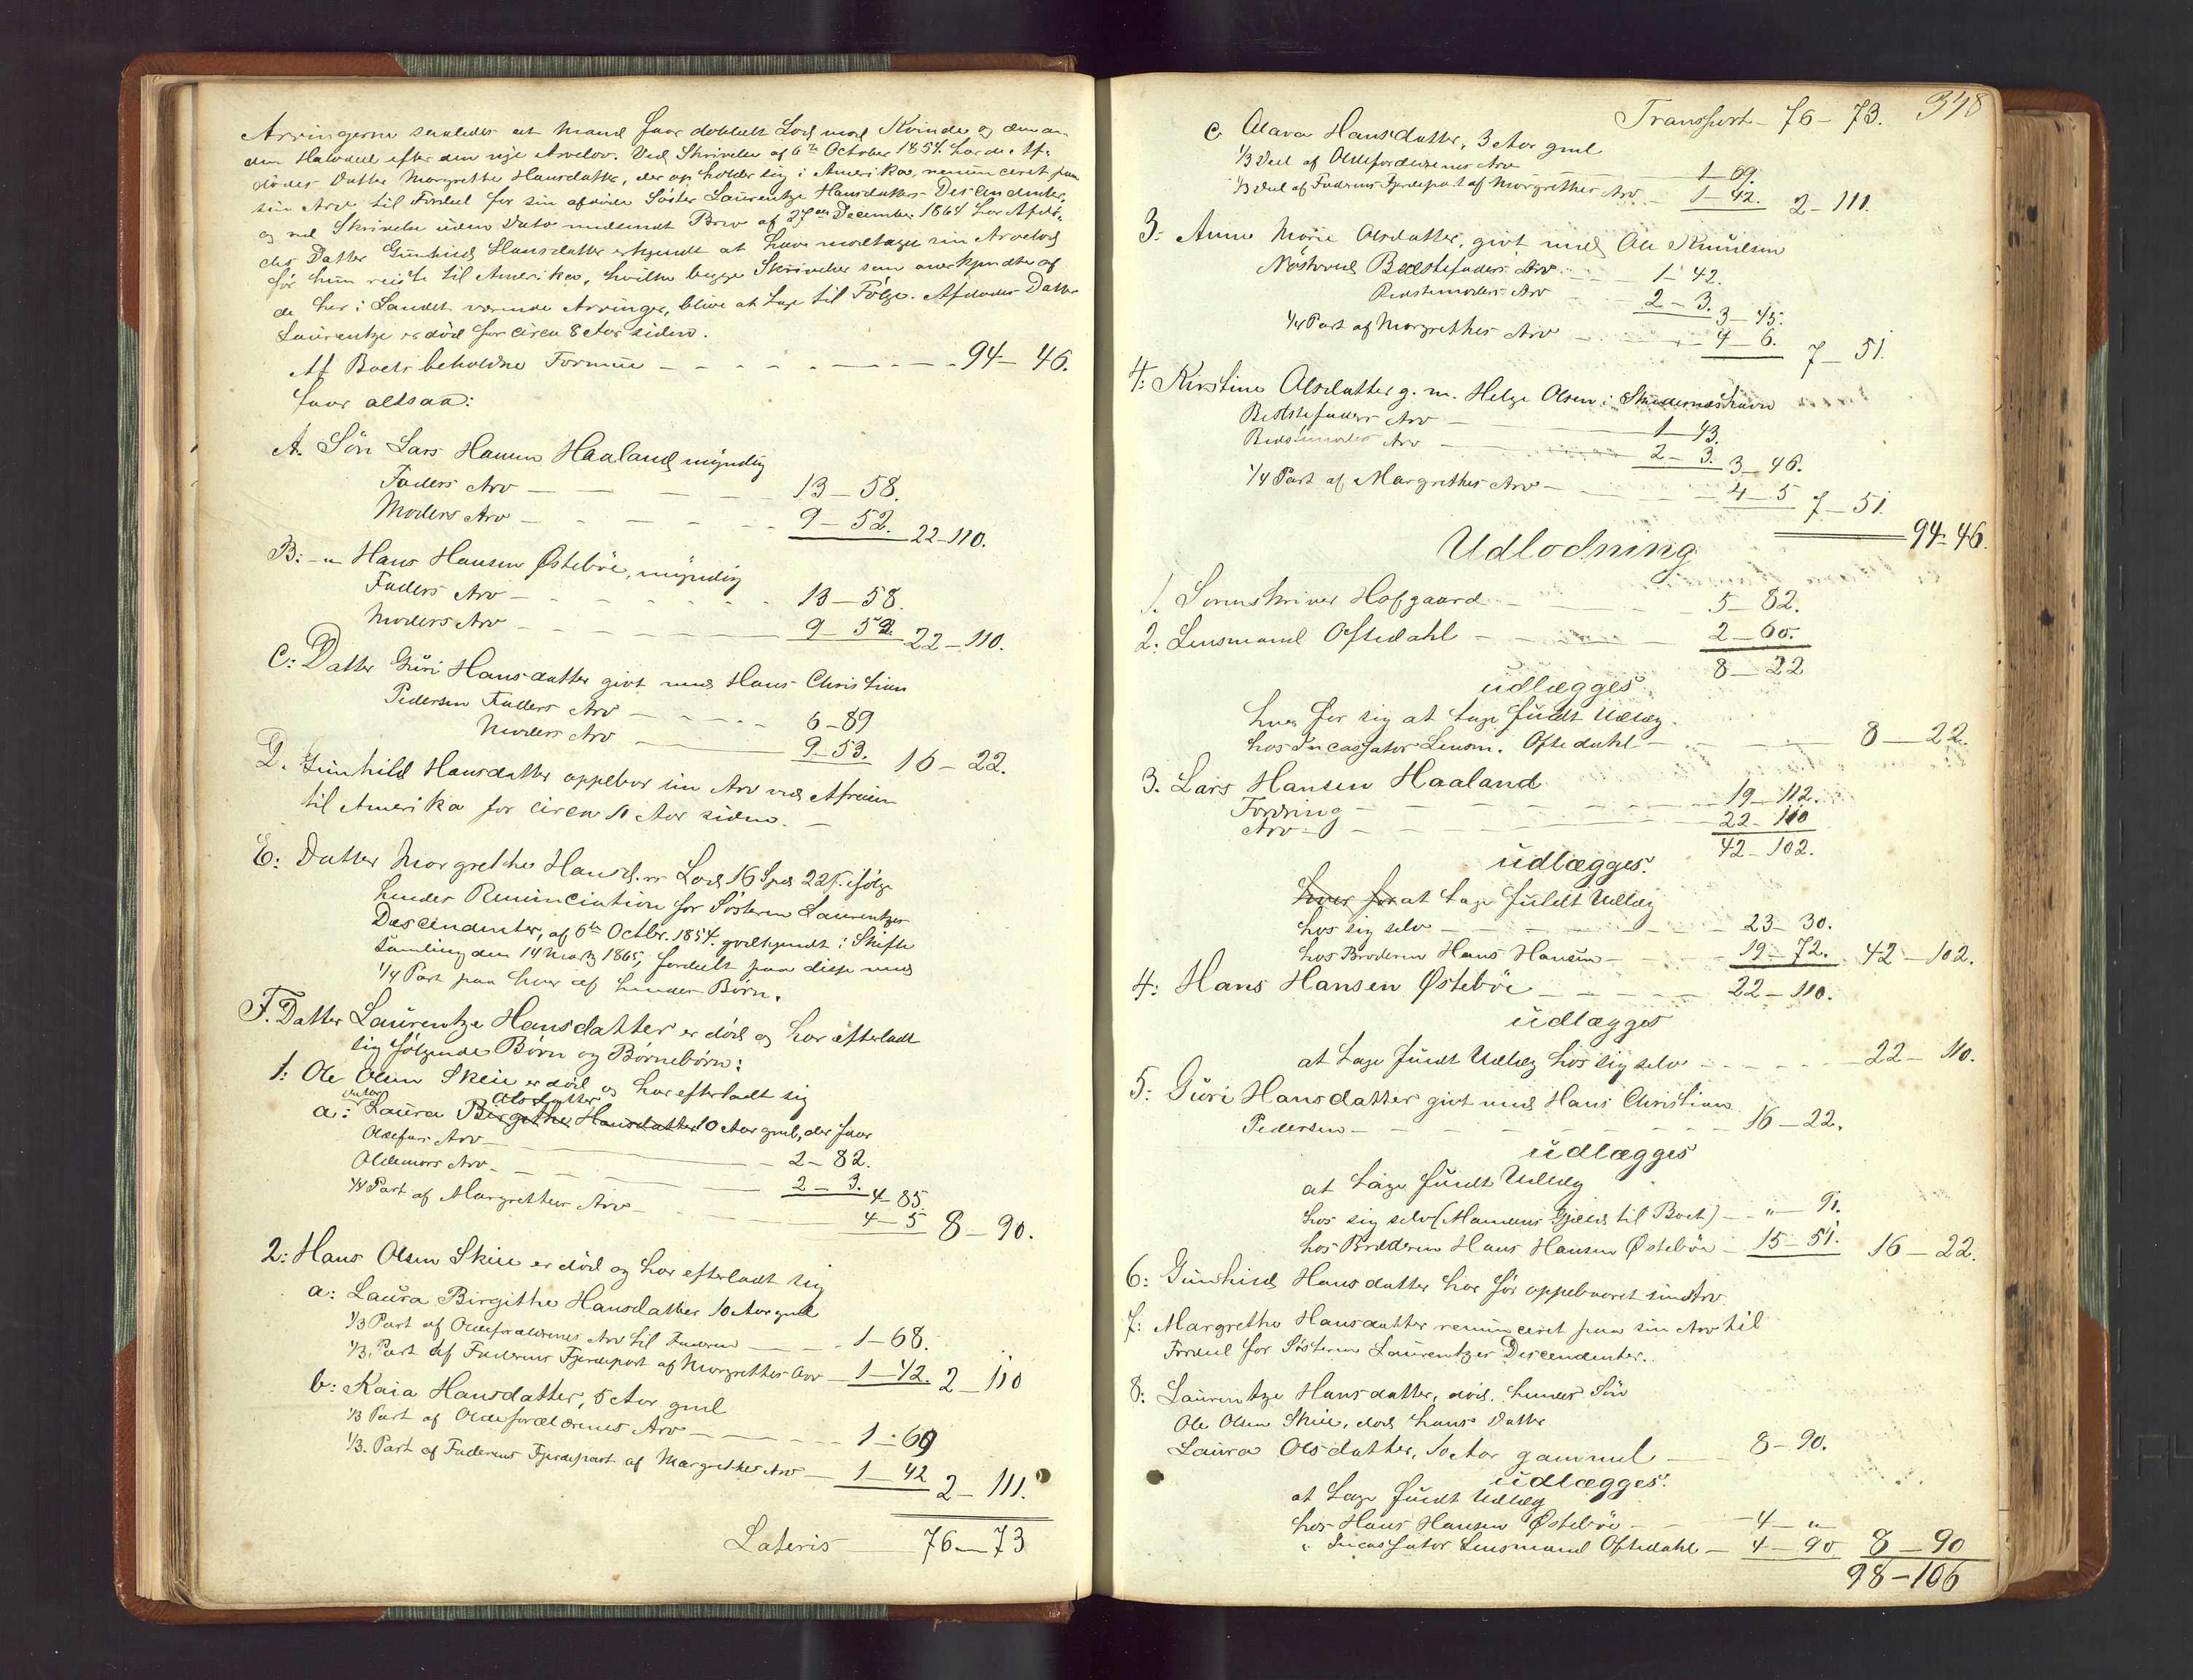 Arvingerne saaledes at Mand faar dobbelt Lod mod Kvinde og den an-
den Halvdeel efter den nye Arvelov. Ved Skrivelse af 6te October 1854 har de Af-
dödes Datter Margrethe Hansdatter, der opholder sig i Amerika, renunceret paa
sin Arv til Fordeel for sin afdöde Söster Laurentze Hansdatters Descendenter,
og ved Skrivelse uden Dato medsendt Brev af 27de December 1864 har Afdö-
des Datter Gunhild Hansdatter erkjendt at have modtaget sin Arvelod
för hun reiste til Amerika, hvilke begge Skrivelser som anerkjendte af
de her i Landet værende Arvinger, blive at tage til Følge. Afdødes Datter
Laurentze er död for circa 8 Aar siden.
Af Boets beholdne Formue 94 - 46.
faar altsaa:
A. Sön Lars Hansen Haaland myndig
Faders Arv 13 - 58.
Moders Arv 9 - 52. 22 - 110.
B: - " Hans Hansen Østeböe, myndig
Faders Arv 13 - 58.
Moders Arv 9 - 52. 22 - 110.
C: Datter Guri Hansdatter givt med Hans Christian
Pedersen Faders Arv 6 - 89
Moders Arv 9 - 53. 16 - 22.
D. Gunhild Hansdatter oppebar sin Arv ved Afreisen
til Amerika for circa 11 Aar siden.
E: Datter Margrethe Hansd.rs Lod 16 Spd 22 s. ifølge
hendes Renunciation for Søsteren Laurentzes
Descendenter, af 6te Octbr. 1854 godkjendt i Skifte
samling den 14 Marts 1865, fordeelt paa disse med
1/4 Part paa hver af hendes Børn.
F. Datter Laurentze Hansdatter er död og har efterladt
sig følgende Börn og Börnebörn:
1: Ole Olsen Skeie er död og har efterladt sig
a: Datter Laura Birgithe Hansdatter Olsdatter 10 Aar gml, der faar
Oldefars Arv 2 - 82.
Oldemors Arv 2 - 3. 4 - 85.
1/4 Part af Margrethes Arv 4 - 5 8 - 90.
2: Hans Olsen Skeie er död og har efterladt sig
a: Laura Birgithe Hansdatter 10 Aar gml
1/3 Part af Oldeforældrenes Arv til Faderen 1 - 68.
1/3 Part af Faderens Fjerdepart af Margrethes Arv 1 - 42. 2 - 110
b: Kaia Hansdatter, 5 Aar gml
1/3 Part af Oldeforældrenes Arv 1 - 69
1/3. Part af Faderens Fjerdepart af Margrethes Arv 1 - 42 2 - 111.
Lateris 76 - 73
348
Transport 76 - 73.
c Alava Hansdatter, 3 Aar gml
1/3 Deel af Oldeforældrenes Arv 1 - 69.
1/3 Deel af Faderens Fjerdepart af Margrethes Arv 1 - 42. 2 - 111.
3: Anne Marie Olsdatter, givt med Ole Knudsen
Bedstefaders Arv 1 - 42.
Bedstemoders Arv 2 - 3. 3 - 45.
1/4 Part af Margrethes Arv 4 - 6. 7 - 51.
4: Kirstine Olsdatter g. m. Helge Olsen i Skudesneshavn
Bedstefaders Arv 1 - 43.
Bedstemoders Arv 2 - 3. 3 - 46.
1/4 Part af Margrethes Arv 4 - 5 7 - 51.
94 - 46.
Udlodning
1. Sorenskriver Hofgaard 5 - 82.
2. Lensmand Oftedahl 2 - 60.
8 - 22
udlægges
hver for sig at tage fuldt Udlæg
hos Incassator Lensm. Oftedahl 8 - 22.
3. Lars Hansen Haaland
Fordring 19 - 112.
Arv 22 - 110
42 - 102.
udlægges.
hver for at tage fuldt Udlæg
hos sig selv 23 - 30.
hos Broderen Hans Hansen 19 - 72. 42 - 102.
4: Hans Hansen Østeböe 22 - 110.
udlægges
at tage fuldt Udlæg hos sig selv 22 - 110.
5: Guri Hansdatter givt med Hans Christian
Pedersen 16 - 22.
udlægges
at tage fuldt Udlæg
hos sig selv (Mandens Gjæld til Boet) " - 91.
hos Broderen Hans Hansen Østeböe 15 - 51. 16 - 22.
6: Gunhild Hansdatter har för oppebaaret sin Arv.
7: Margrethe Hansdatter renunceret paa sin Arv til
Fordeel for Søsteren Laurentzes Descendenter.
8: Laurentze Hansdatter, död, hendes Sön
Ole Olsen Skeie, död hans Datter
Laura Olsdatter, 10 Aar gammel 8 - 90.
udlægges.
at tage fuldt Udlæg
hos Hans Hansen Østeböe 4 - "
" Incassator Lensmand Oftedahl 4 - 90 8 - 90
98 - 106